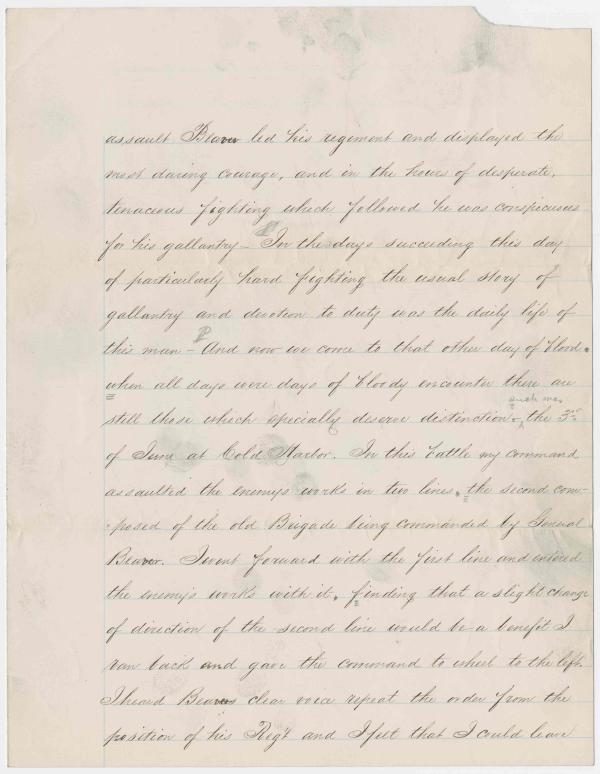 assault Beaver led his regiment and displayed the
most daring courage, and in the hours of desperate,
tenacious fighting which followed he was conspicuous
for his gallantry – In the days succeeding this day
of particularly hard fighting the usual story of
gallantry and devotion to duty was the daily life of
this man – And now we come to that other day of blood.
when all days were days of bloody encounter there are
such was
still those which specially deserve distinction – the 3rd
of June at Cold Harbor. In this battle my command
assaulted the enemy's works in two lines, the second com-
posed of the old Brigade being commanded by General
Beaver. I went forward with the first line and entered
the enemy's works with it. finding that a slight change
of direction of the second line would be a benefit I
ran back and gave the command to wheel to the left.
I heard Beavers clear voice repeat the order from the
position of his Regt and I felt that I could leave